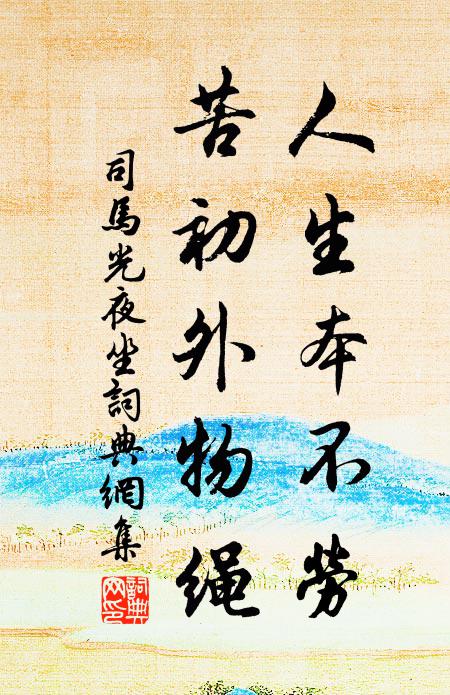 人生本不勞
苦初外物绳
司馬光夜坐詞典網集
詞典
网印